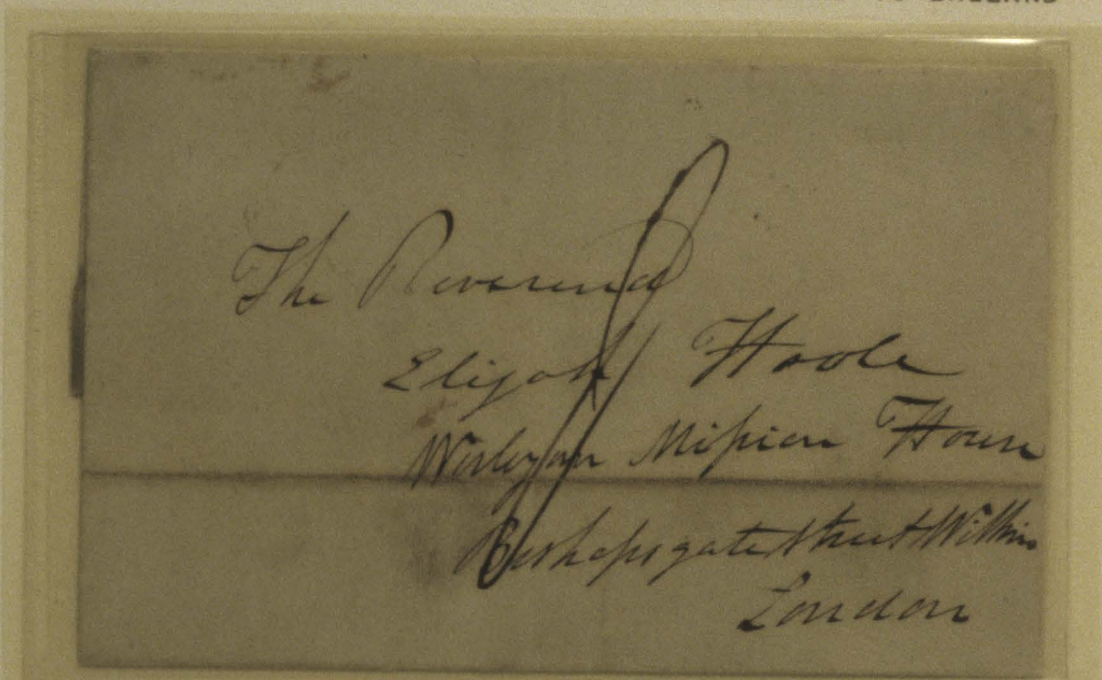 TO ENGLAND
The Reverend
Elijah Hoole
Wesleyan Mission House
Bishopsgate Street Within
London